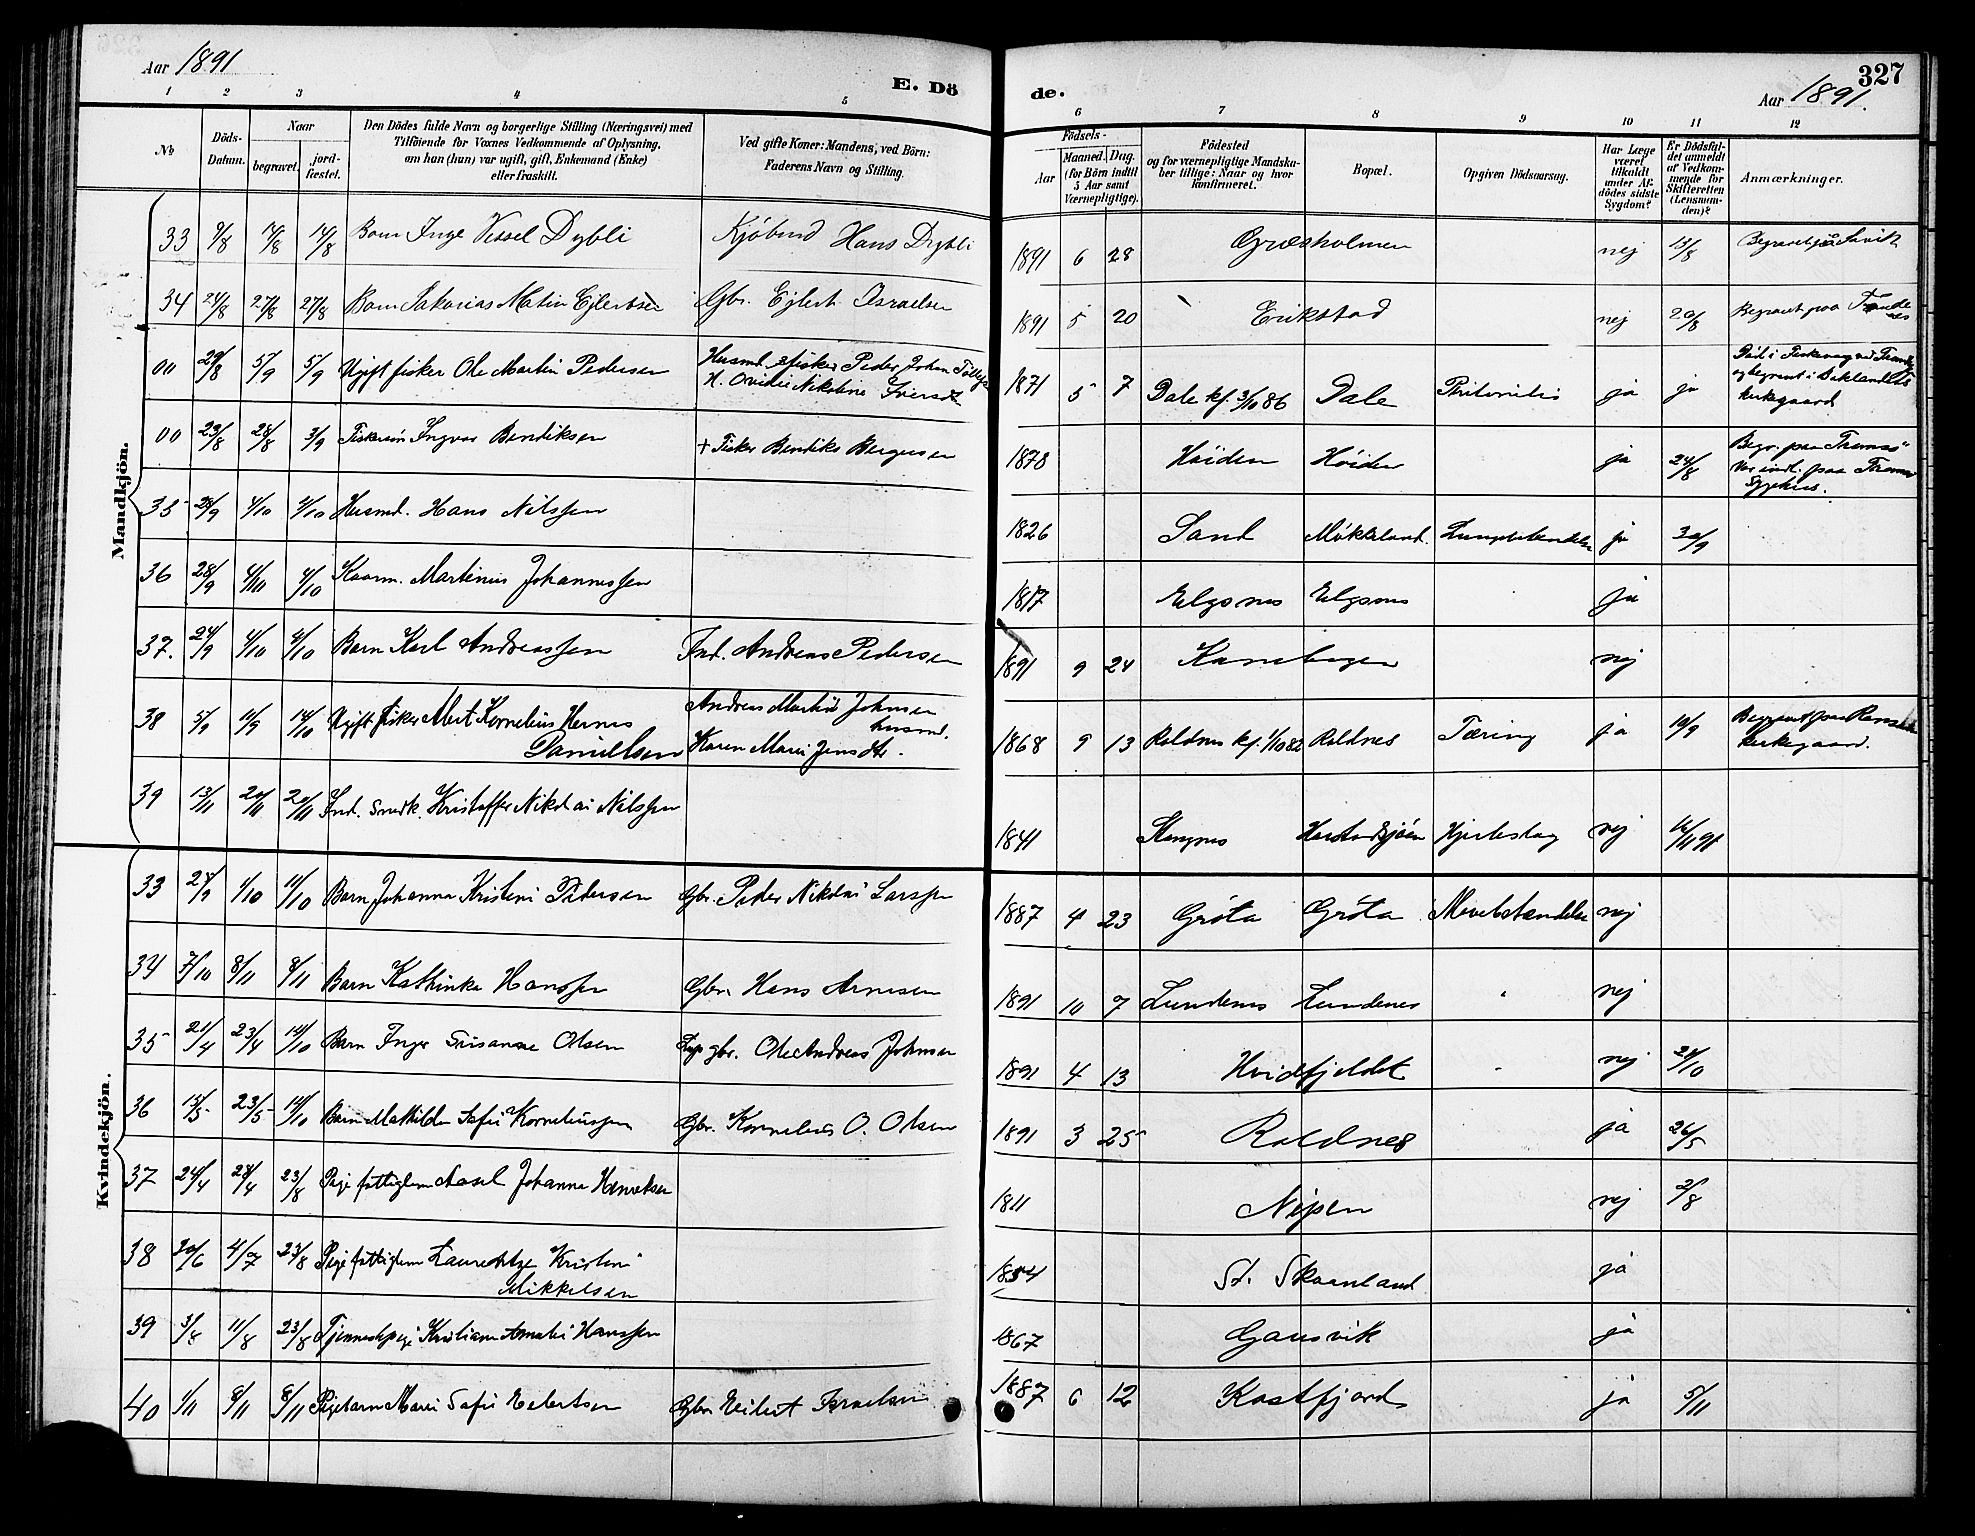 Aar 1891
E. Dö
de.
327
Aar 1891.
1 2 3 4 5 6 7 8 9 10 11 12
No
Döds-Datum.
Naar
begravet.
jord-fæstet.
Den Dödes fulde Navn og borgerlige Stilling (Næringsvei) med
Tilföiende for Voxnes Vedkommende af Oplysning,
om han (hun) var ugift, gift, Enkemand (Enke)
eller fraskilt.
Ved gifte Koner: Mandens, ved Börn:
Faderens Navn og Stilling.
Födsels-
Aar
Maaned. Dag.
(for Börn indtil
5 Aar samt
Værnepligtige).
Födested
og for værnepligtige Mandska-
ber tillige: Naar og hvor
konfirmeret.
Bopæl.
Opgiven Dödsaarsag.
Har Læge
været
tilkaldt
under Af-
dödes sidste
Sygdom?
Er Dödsfal-
det anmeldt
af Vedkom-
mende for
Skifteretten
(Lensman-
den)?
Anmærkninger.
Mandkjön.
33 9/8 14/8 14/8 Barn Inge Vessel Dybli Hans Dybli 1891 6 28 Græsholmen nej 13/8
34 24/8 27/8 27/8 Barn Sakarias Martin Ejlertsen Gbr. Ejlert Israelsen 1891 5 20 Erikstad nej 20/8 Begravet paa
00 29/8 5/9 5/9 Ugift fisker Ole Martin Pedersen Husmd. & fisker Peder Johan
1871 5 7 Dale kf. 3/10 86 Dale ja ja
kirkegaard
00 23/8 28/8 3/9 Ingvar Bendiksen + Fisker Bendiks Bergersen 1878 Höiden Höiden ja 24/8 Begr. paa Tromsö
Var indl. paa Tromsö
Sygehus.
35 28/9 4/10 4/10 Husmd. Hans Nilssen 1826 Sand Møkkeland. Lungebetændelse ja 30/9
36 28/9 4/10 4/10 Kaarm. Martinus Johannessen 1817 Elgsnes Elgsnes ja
37. 24/9 4/10 4/10 Barn Karl Andreassen Ind. Andreas Pedersen 1891 9 24 Kanebogen nej
38 5/9 11/9 14/10 Ugift fisker Mert Kornelius Hernes
Danielsen
Andreas Martin Johnsen
husmd.
Karen Marie Jensdtr.
1868 9 13 Roldnes kf. 1/10 82 Roldnes Tæring ja 10/9 Begravet paa
Kirkegaard.
39 13/11 20/11 20/11 Ind. Snedk. Kristoffer Nikolai Nilssen 1841 Stangnes Harstadsjöen Hjerteslag nej 16/11 91
Kvindekjön.
33 24/9 1/10 11/10 Barn Johanna Kristine Pedersen Gbr. Peder Nikolai Larssen 1887 4 23 Gröta Gröta nej
34 7/10 8/11 8/11 Barn Kathinka Hanssen Gbr. Hans Arnesen 1891 10 7 Lundenes Lundenes nej
35 21/4 23/4 14/10 Barn Inger Susanne Olsen gbr. Ole Andreas Johnsen 1891 4 13 Hvidfjeldet nej 24/10
36 15/5 23/5 14/10 Barn Mathilde Sofie Korneliussen Gbr. Kornelius O. Olsen 1891 3 25 Roldnes ja 26/5
37 24/4 28/4 23/8 Pige fattiglem Aasel Johanna Henriksen 1811 Nipen nej 2/8
38 20/6 4/7 23/8 Pige fattiglem Kristine
Mikkelsen
1854 St. Skaanland ja
39 3/8 11/8 23/8 Tjenestepige Kristiane Amalie Hanssen 1867 Gansvik ja
40 1/11 8/11 8/11 Pigebarn Marie Sofie Eilertsen Gbr. Eilert Israelsen 1887 6 12 Kastfjord ja 5/11